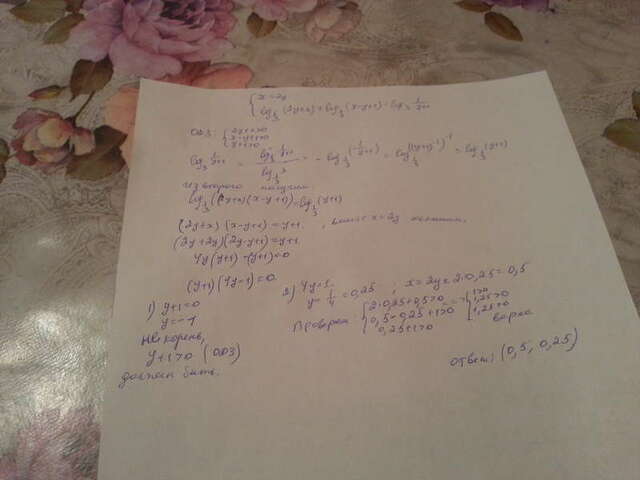 { x = 2y
log_{1/3}(2y+x) + log_{1/3}(x-y+1) = log_3 1/(y+1)
ОДЗ: { 2y+x>0
x-y+1>0
y+1>0
log_3 1/(y+1) = log_{1/3} 1/(y+1) / log_{1/3} 3 = - log_{1/3} (1/(y+1)) = log_{1/3} ((y+1)^{-1})^{-1} = log_{1/3} (y+1)
из второго получим
log_{1/3} ((2y+x)(x-y+1)) = log_{1/3} (y+1)
(2y+x)(x-y+1) = y+1 , x=2y
(2y+2y)(2y-y+1) = y+1
4y(y+1) - (y+1) = 0
(y+1)(4y-1) = 0
1) y+1=0
y=-1
Не корень,
y+1>0 (ОДЗ)
должен быть.
2) 4y=1
y = 1/4 = 0,25 ; x = 2y = 2·0,25 = 0,5
Проверка { 2·0,25+0,5>0
0,5-0,25+1>0
0,25+1>0
=> { 1>0
1,25>0
1,25>0
верно
Ответ: (0,5; 0,25)